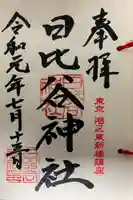 奉拝
東京 港区東新橋鎮座
日比谷神社
令和元年七月十三日